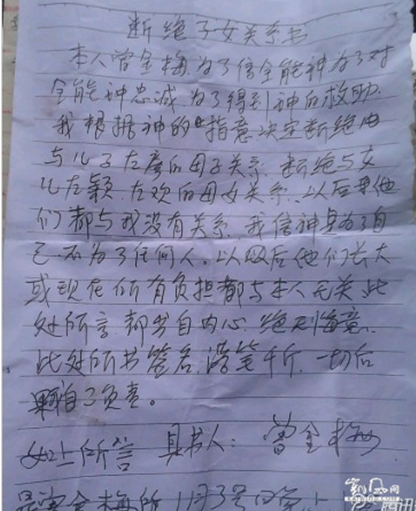 断绝子女关系书
本人曾金梅为了信全能神为了对
全能神忠诚.为了得到神的救助.
我根据神的"指意决定断绝
与儿子左彦的母子关系.断绝与女
儿左颖.左欢的母女关系.以后
们都与我没有关系.我信神为了自
己不为了任何人.以后他们长大
或现在所有负担都与本人无关此
处所言都出自内心.绝无悔意.
此处所书签名.落笔千斤.一切后
果自己负责。
如上所言 具书人:曾金梅
凯风网
腾讯